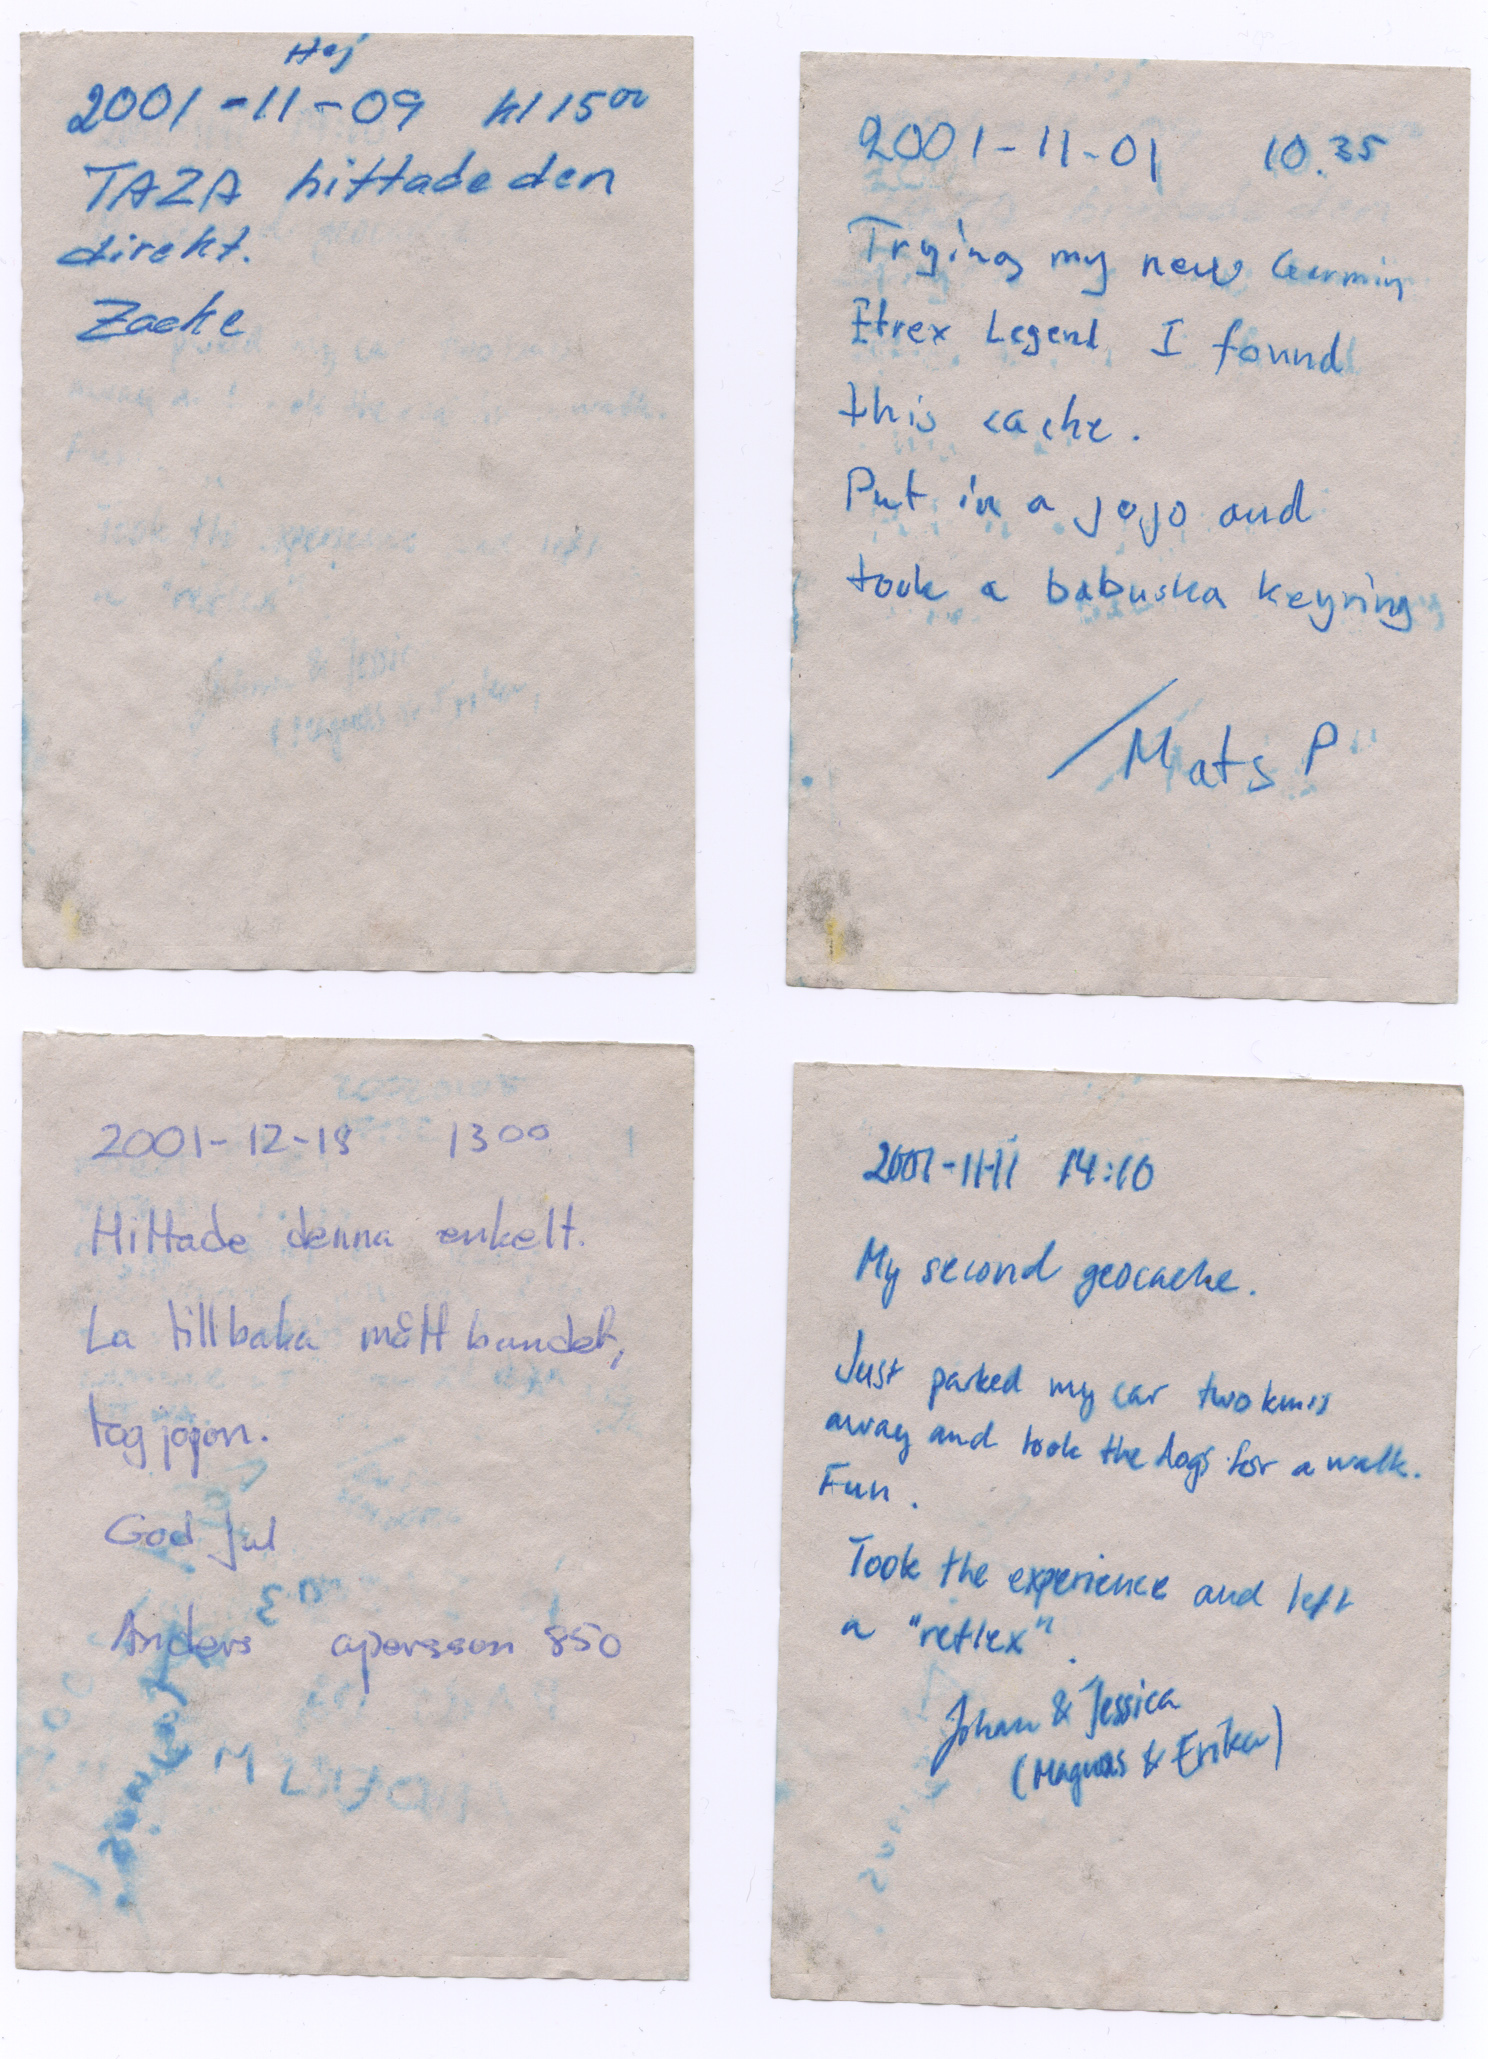 Hej
2001-11-09 kl 15⁰⁰
TAZA hittade den
direkt.
Zacke
2001-11-01 10.35
Trying my new Garmin
Etrex Legend I found
this cache.
Put in a jojo and
took a babuska keyring
/Mats P
2001-12-18 13⁰⁰
Hittade denna enkelt.
La tillbaka måttbandet,
tog jojon.
God Jul
Anders apersson 850
2001-11-11 14:10
My second geocache.
Just parked my car two kms
away and took the dogs for a walk.
Fun.
Took the experience and left
a "reflex".
Johan & Jessica
(Magnus & Erika)